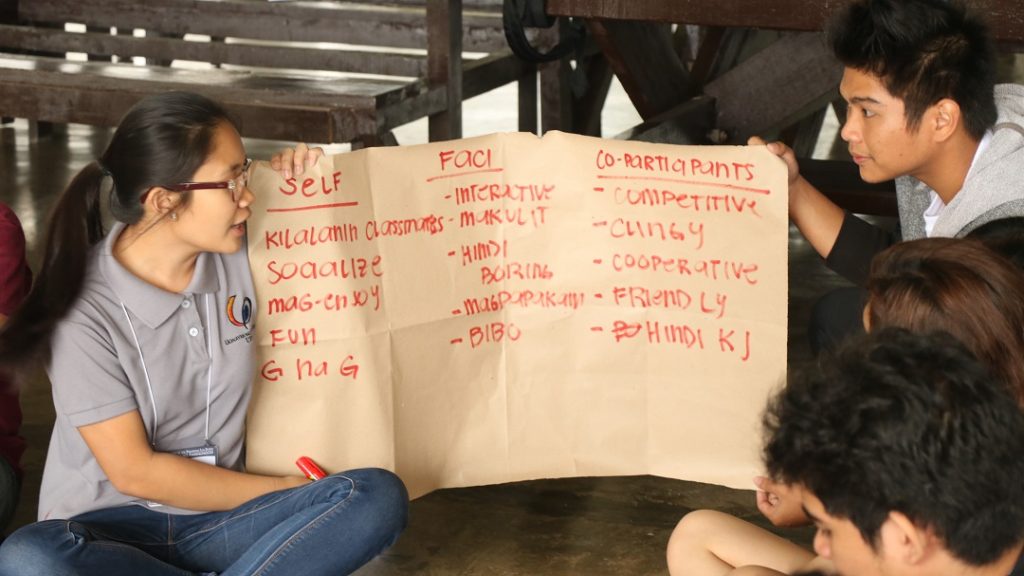 SELF
KILALANIN CLASSMATES
SOCIALIZE
MAG-ENJOY
FUN
G na G
FACI
- INTERACTIVE
- MAKULIT
- HINDI
BORING
- MAGPAPAKAIN
- BIBO
CO-PARTICIPANTS
- COMPETITIVE
- CLINGY
- COOPERATIVE
- FRIENDLY
- HINDI KJ